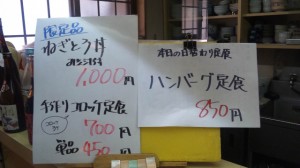 限定品
ねぎとろ丼
みそ汁付
1,000円
コロッケ定食
700円
単品
450円
本日の日替わり定食
ハンバーグ定食
850円